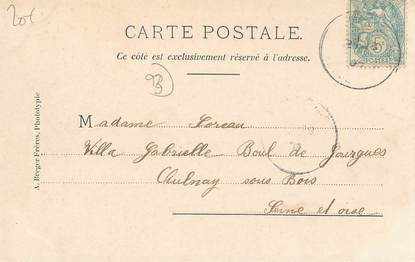 20€
CARTE POSTALE.
Ce côté est exclusivement réservé à l'adresse.
93
Madame Loreau
Villa Gabrielle Boul de Gourgues
Aulnay sous Bois
Seine et oise
A. Breger Frères, Phototypie